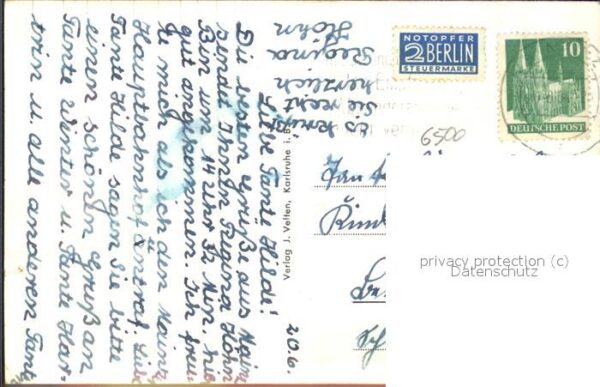 20.6.
Liebe Tante Hilde!
Die besten Grüße aus Mainz
sendet Ihnen Regina Höhn
Bin um 14 Uhr 12 Min. hier
gut angekommen. Ich freu-
te mich als ich den Mainzer
Hauptbahnhof
Tante Hilde sagen Sie bitte
einen schönen Gruß an
Tante Winter u. Tante Kat-
trin u. alle anderen Tant
Es grüßt
Sie recht
herzlich
Regina
Höhn
Verlag J. Velten, Karlsruhe i. B.
NOTOPFER
2 BERLIN
STEUERMARKE
10
DEUTSCHE POST
6500
Kind
privacy protection (c)
Datenschutz